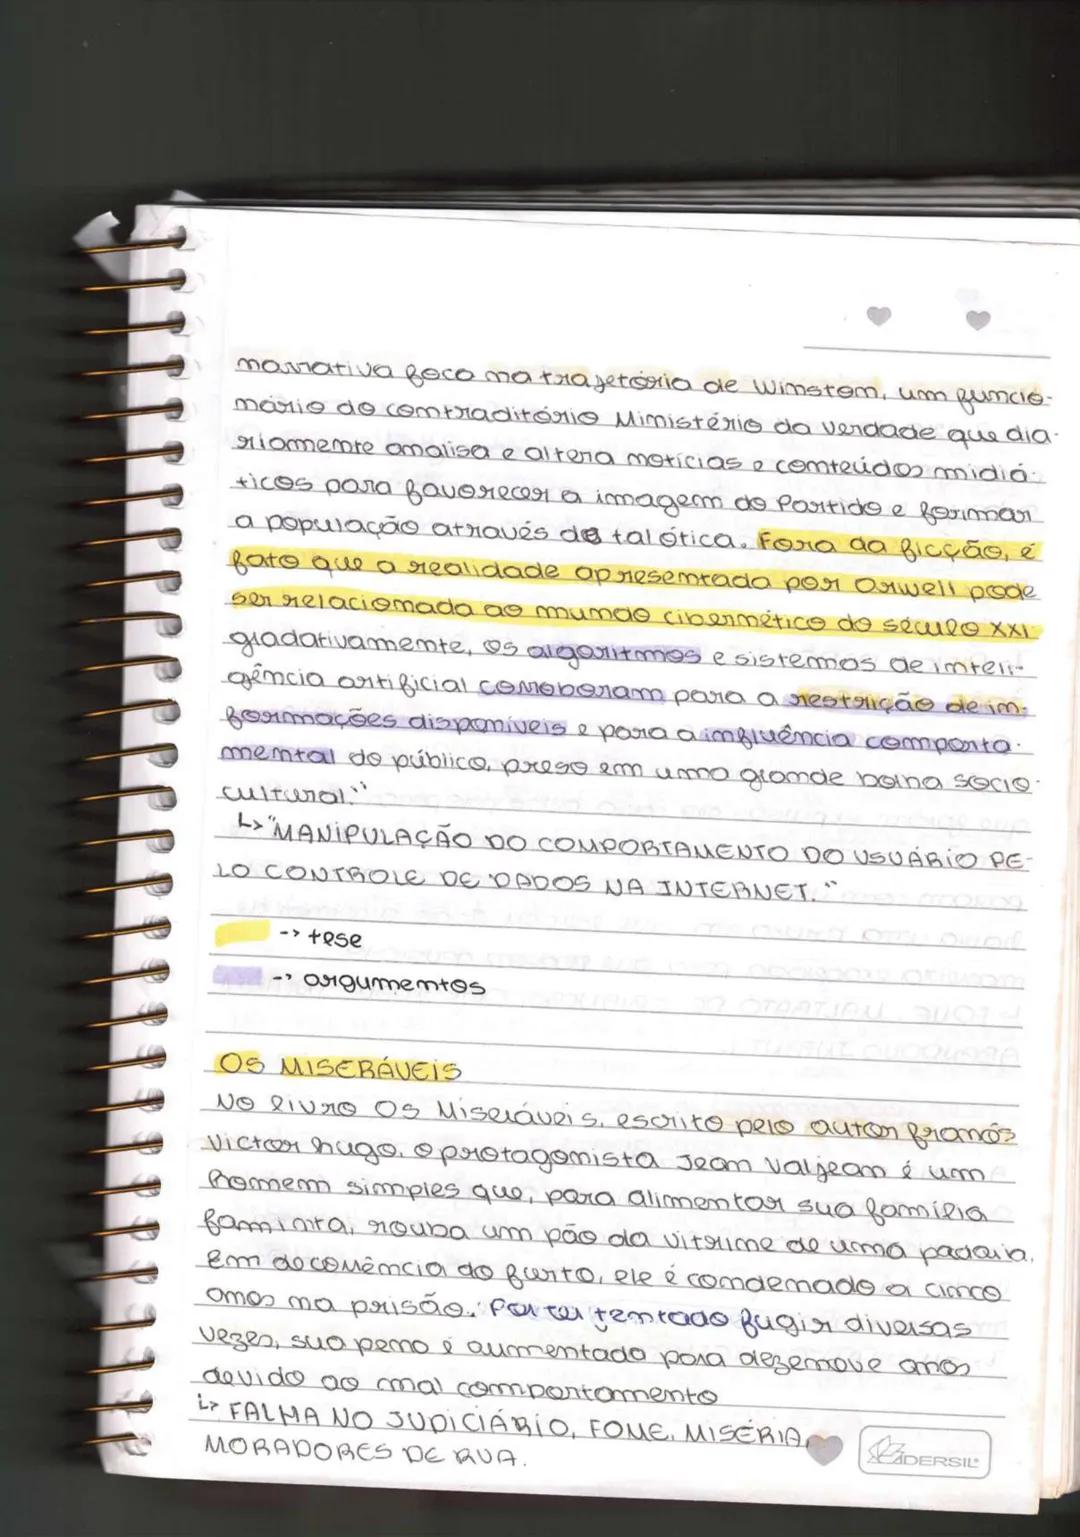 narrativa foca na trajetória de Winstom, um funcio-
nário do contraditório Ministério da verdade que dia-
riamente analisa e altera notícias e conteúdos midiá-
ticos para favorecer a imagem do Partido e formar
a população através de tal ótica. Fora da ficção, é
fato que a realidade apresentada por Orwell pode
ser relacionada ao mundo cibernético do século XXI
gradativamente, os algoritmos e sistemas de inteli-
gência artificial corroboram para a restrição de in-
formações disponíveis e para a influência comporta-
mental do público, preso em uma grande bolha socio-
cultural."
↳ "MANIPULAÇÃO DO COMPORTAMENTO DO USUÁRIO PE-
LO CONTROLE DE DADOS NA INTERNET."
-> tese
-> argumentos
OS MISERÁVEIS
No livro Os Miseráveis, escrito pelo autor francês
Victor hugo, o protagonista Jean Valjean é um
homem simples que, para alimentar sua família
faminta, rouba um pão da vitrine de uma padaria.
Em decorrência do furto, ele é condenado a cinco
anos na prisão. Por ter tentado fugir diversas
vezes, sua pena é aumentada para dezenove anos
devido ao mal comportamento
↳ FALHA NO JUDICIÁRIO, FOME, MISÉRIA,
MORADORES DE RUA.
ADERSIL